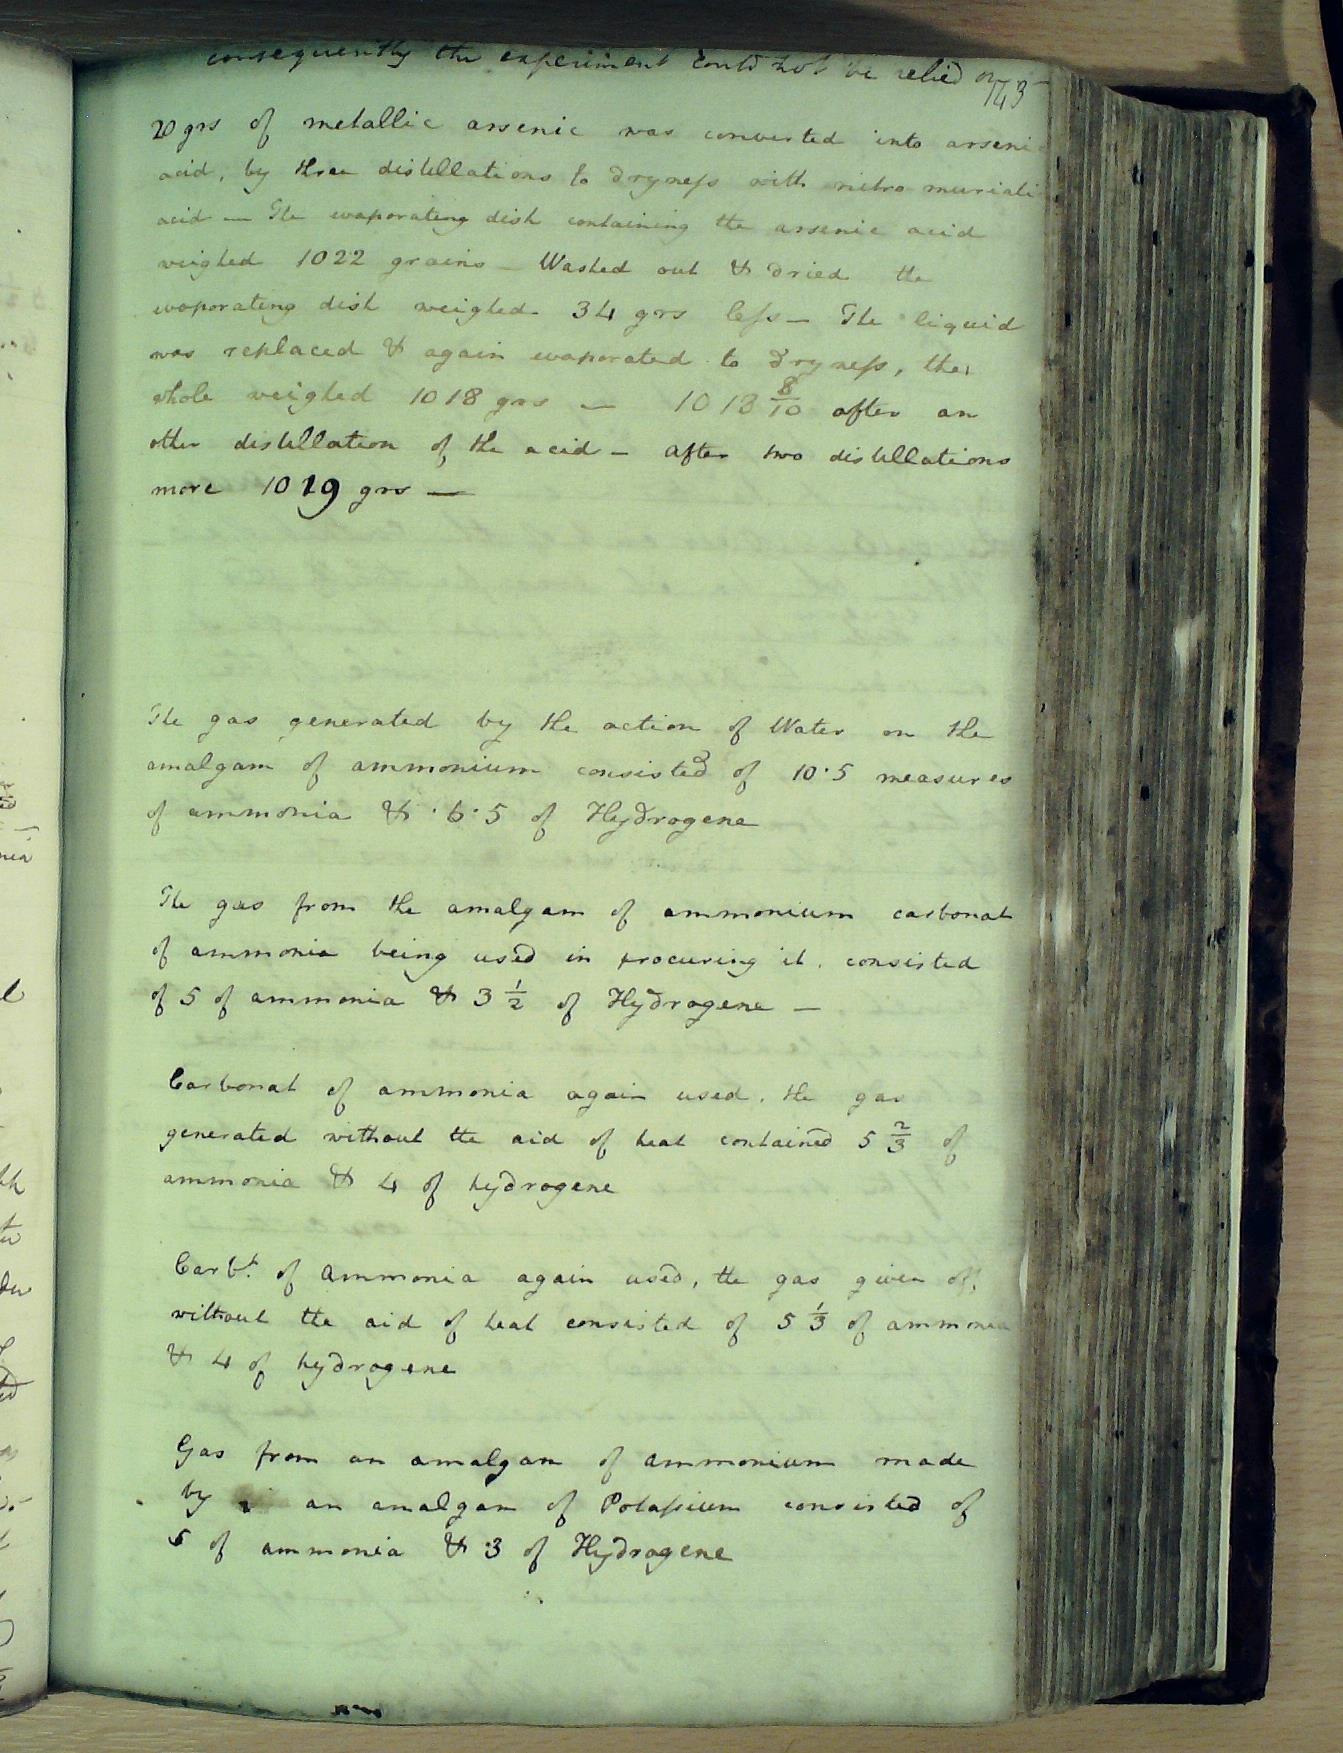 consequently the experiment could not be relied on
143
20 grs of metallic arsenic was converted into arsenic
acid, by three distillations to dryneſs with nitro muriati
acid — The evaporating dish containing the arsenic acid
weighed 1022 grains — Washed out & dried the
evaporating dish weighed 34 grs leſs — The liquid
was replaced & again evaporated to dryneſs, the
whole weighed 1018 grs — 1018 8/10 after an
other distillation of the acid — after two distillations
more 1019 grs —
The gas generated by the action of Water on the
amalgam of ammonium consisted of 10·5 measures
of ammonia & 6·5 of Hydrogene
The gas from the amalgam of ammonium carbonat
of ammonia being used in procuring it, consisted
of 5 of ammonia & 3 1/2 of Hydrogene —
Carbonat of ammonia again used, the gas
generated without the aid of heat contained 5 2/3 of
ammonia & 4 of hydrogene
Carbt. of ammonia again used, the gas given off,
without the aid of heat consisted of 5 1/3 of ammonia
& 4 of hydrogene
Gas from an amalgam of ammonium made
by an amalgam of Potaſsium consisted of
5 of ammonia & 3 of Hydrogene